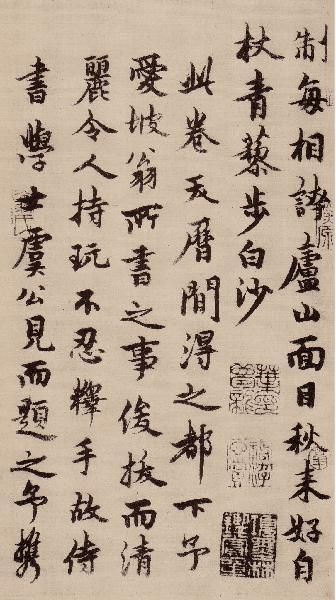 制每相誇廬山面目秋來好自
杖青藜步白沙
此卷天曆間得之都下予
愛坡翁所書之事俊拔而清
麗令人持玩不忍釋手故侍
書學士虞公見而題之予攜